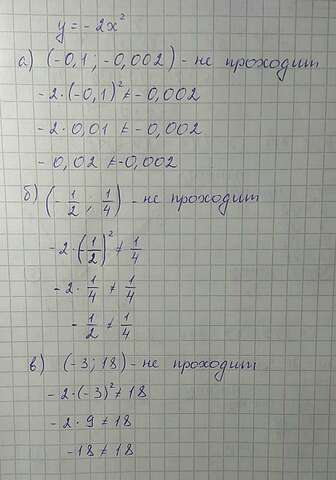 y = -2x²
а) (-0,1 ; -0,002) - не проходит
-2·(-0,1)² ≠ -0,002
-2·0,01 ≠ -0,002
-0,02 ≠ -0,002
б) (-1/2 ; 1/4) - не проходит
-2·(-1/2)² ≠ 1/4
-2·1/4 ≠ 1/4
-1/2 ≠ 1/4
в) (-3; 18) - не проходит
-2·(-3)² ≠ 18
-2·9 ≠ 18
-18 ≠ 18